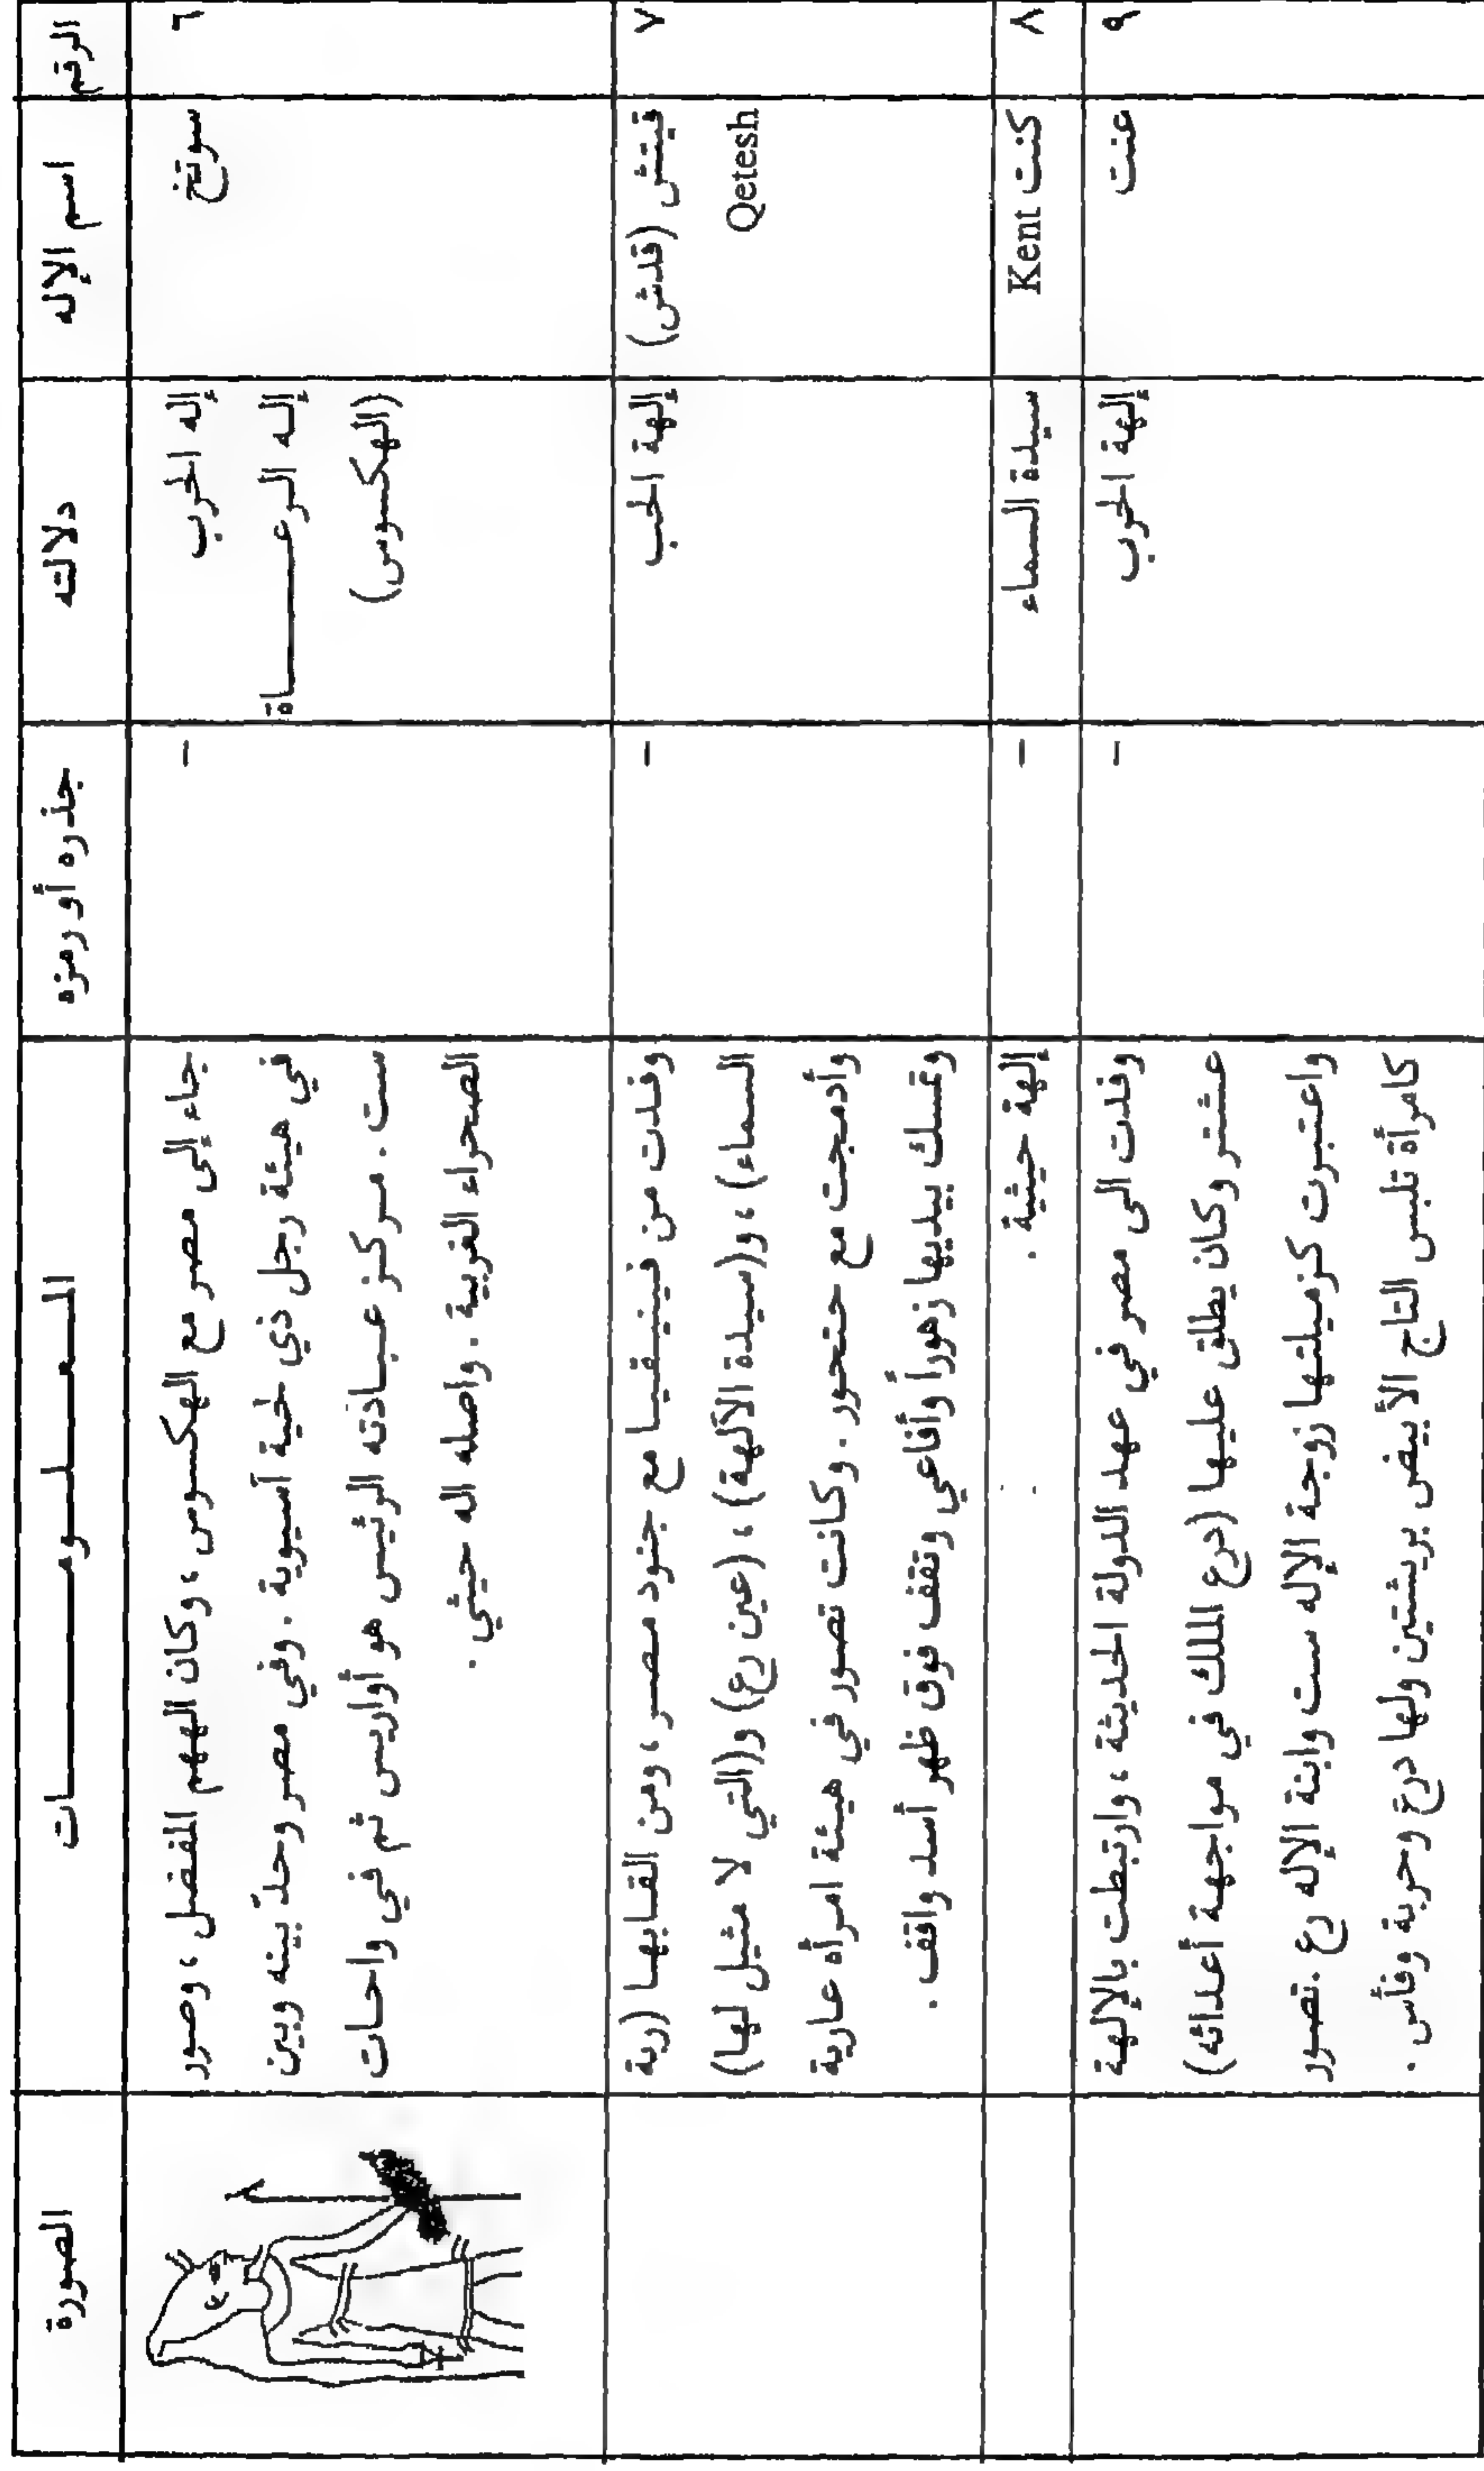 الرقم
اسم الإله
دلالته
جذره أو رمزه
المـعـلـومـــات
الصورة
٦
سوتخ
إله الحرب
إلـه الرعـــاة
(الهكسوس)
–
جاء إلى مصر مع الهكسوس، وكان الههم المفضل، وصور
في هيئة رجل ذي لحية آسيوية. وفي مصر وحدّ بينه وبين
ست. مركز عبادته الرئيس هو أواريس ثم في واحات
الصحراء الغربية. واصله اله حيثي.
٧
قيتش (قدش)
Qetesh
إلهة الحب
–
وفدت من فينيقيا مع جنود مصر، ومن القابها (ربة
السماء)، و(سيدة الآلهة)، (عين رع) و(التي لا مثيل لها)
وأدمجت مع حتحور. وكانت تصور في هيئة امرأه عارية
وتمسك بيديها زهوراً وأفاعي وتقف فوق ظهر أسد واقف.
٨
كنت Kent
سيدة السماء
–
إلهة حيثية.
٩
عنت
إلهة الحرب
–
وفدت الى مصر في عهد الدولة الحديثة، وارتبطت بالإلهة
عشتر وكان يطلق عليها (درع الملك في مواجهة أعدائه)
واعتبرت كزميلتها زوجة الإله ست وابنة الإله رع. تصور
كامرأة تلبس التاج الأبيض بريشتين ولها درع وحربة وفأس.